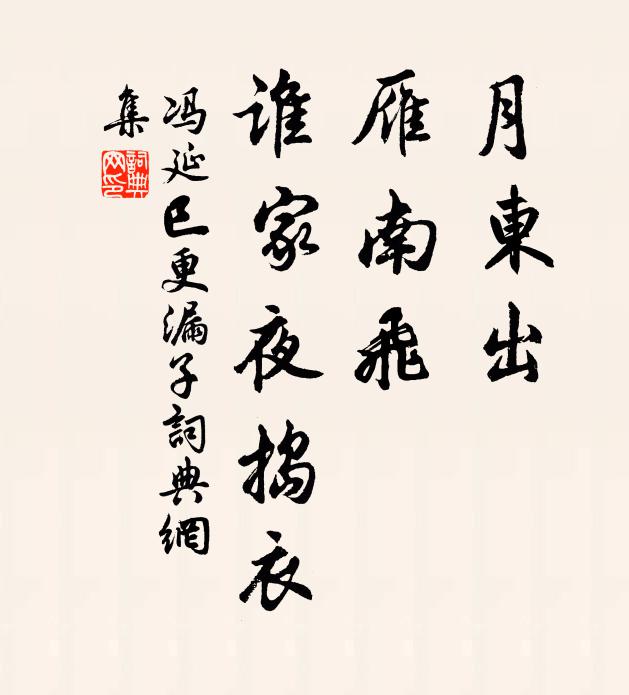 月東出
雁南飛
谁家夜搗衣
冯延巳更漏子詞典網
集
詞典
网印